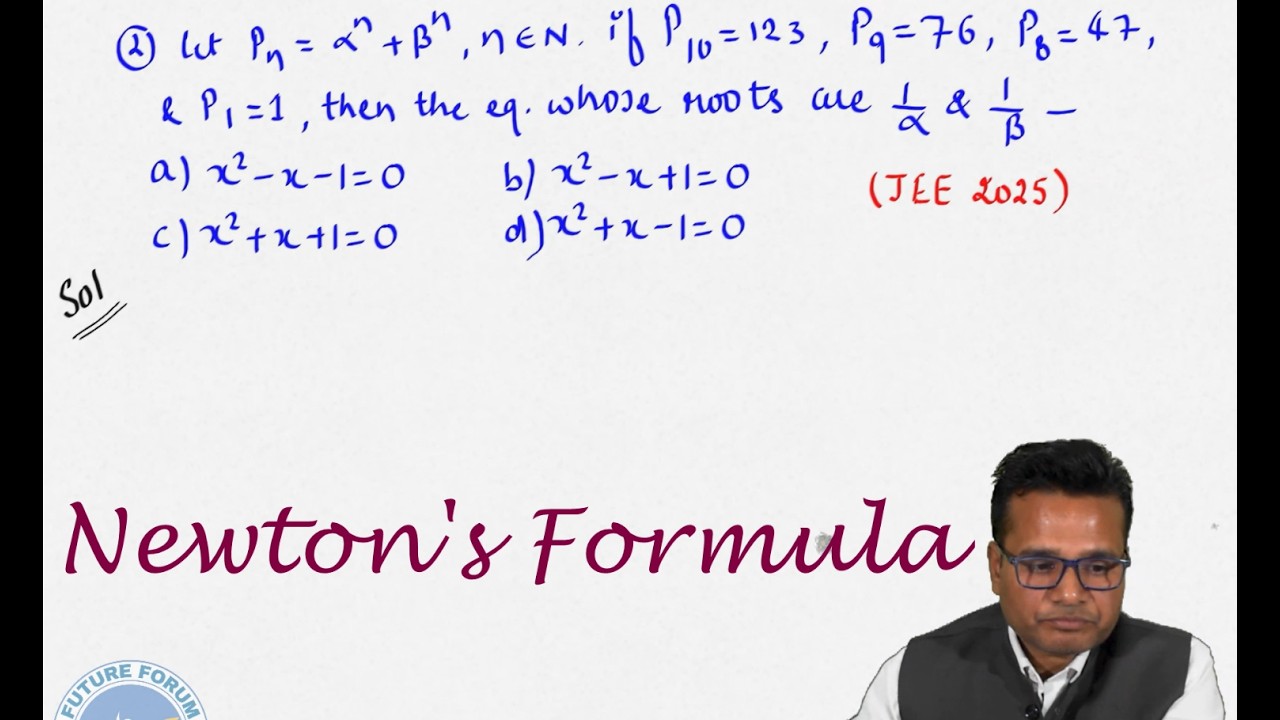 ② Let Pₙ = αⁿ + βⁿ, n ∈ N. if P₁₀ = 123, P₉ = 76, P₈ = 47,
& P₁ = 1, then the eq. whose roots are 1/α & 1/β —
a) x² - x - 1 = 0 b) x² - x + 1 = 0 (JEE 2025)
c) x² + x + 1 = 0 d) x² + x - 1 = 0
Sol
Newton's Formula
FUTURE FORUM